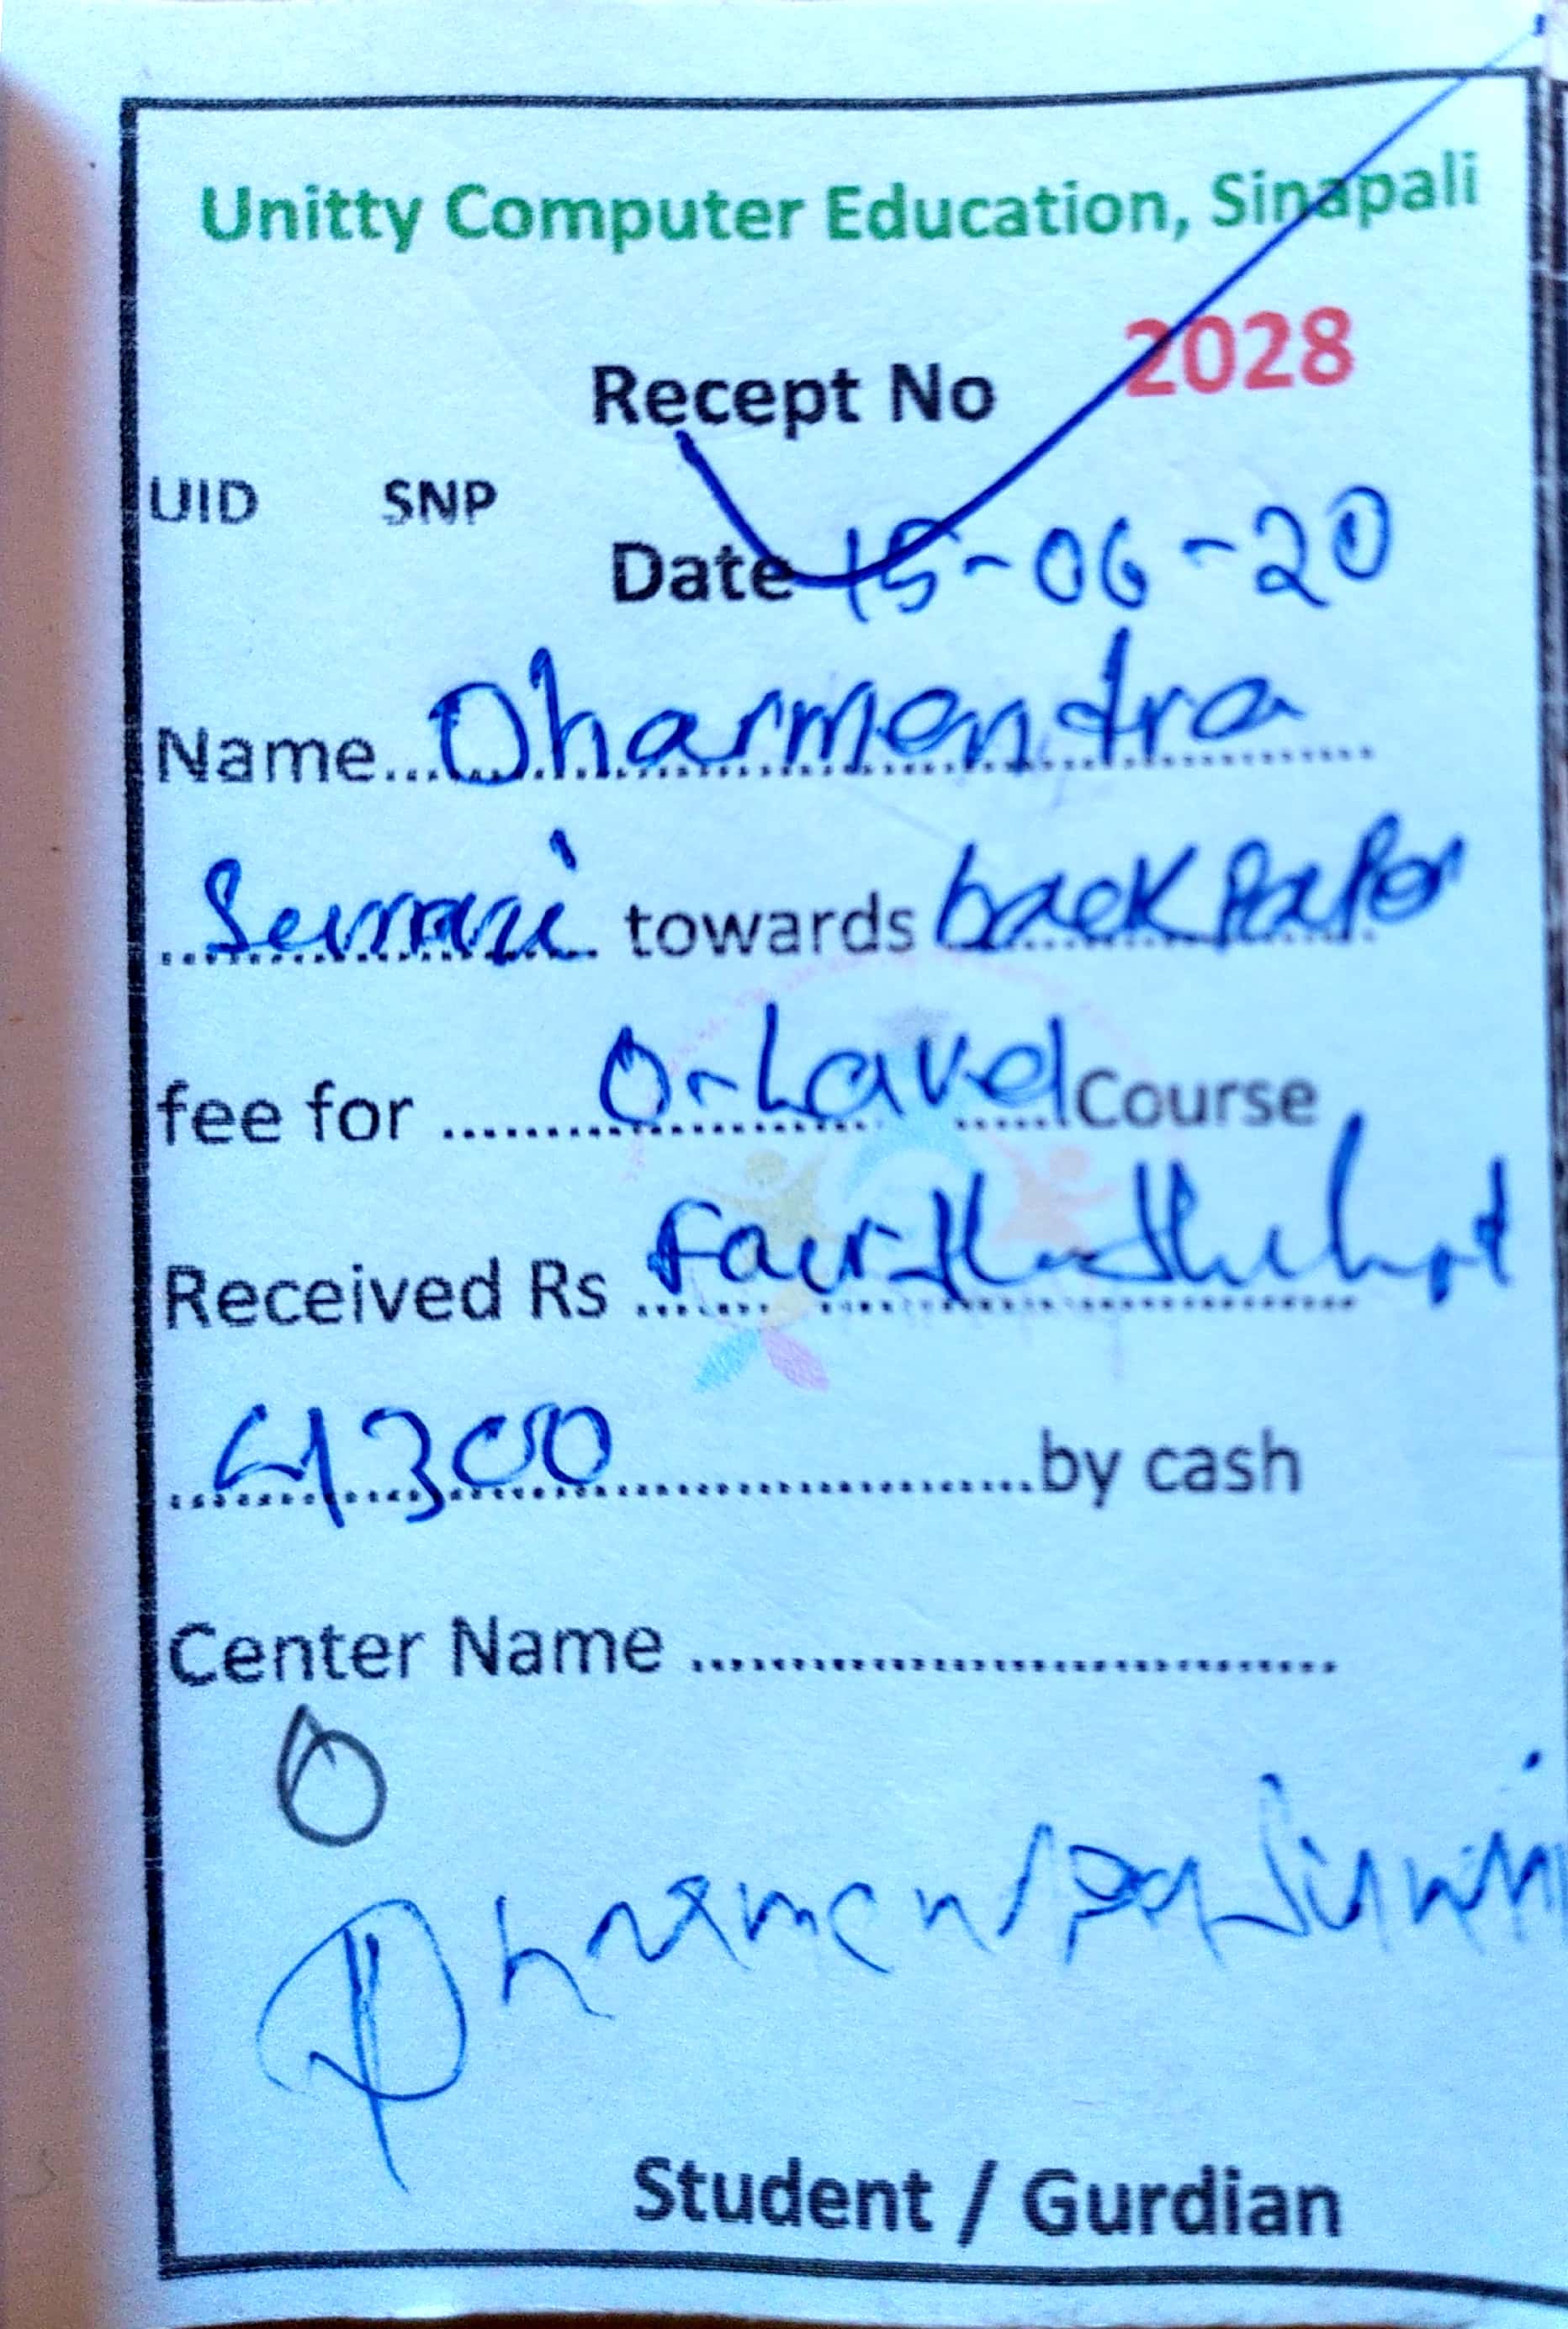 Unitty Computer Education, Sinapali
Recept No 2028
UID SNP
Date 15-06-20
Name Dharmendra
towards back Paper
fee for O-Lavel Course
Received Rs Four
4300 by cash
Center Name
Student / Gurdian